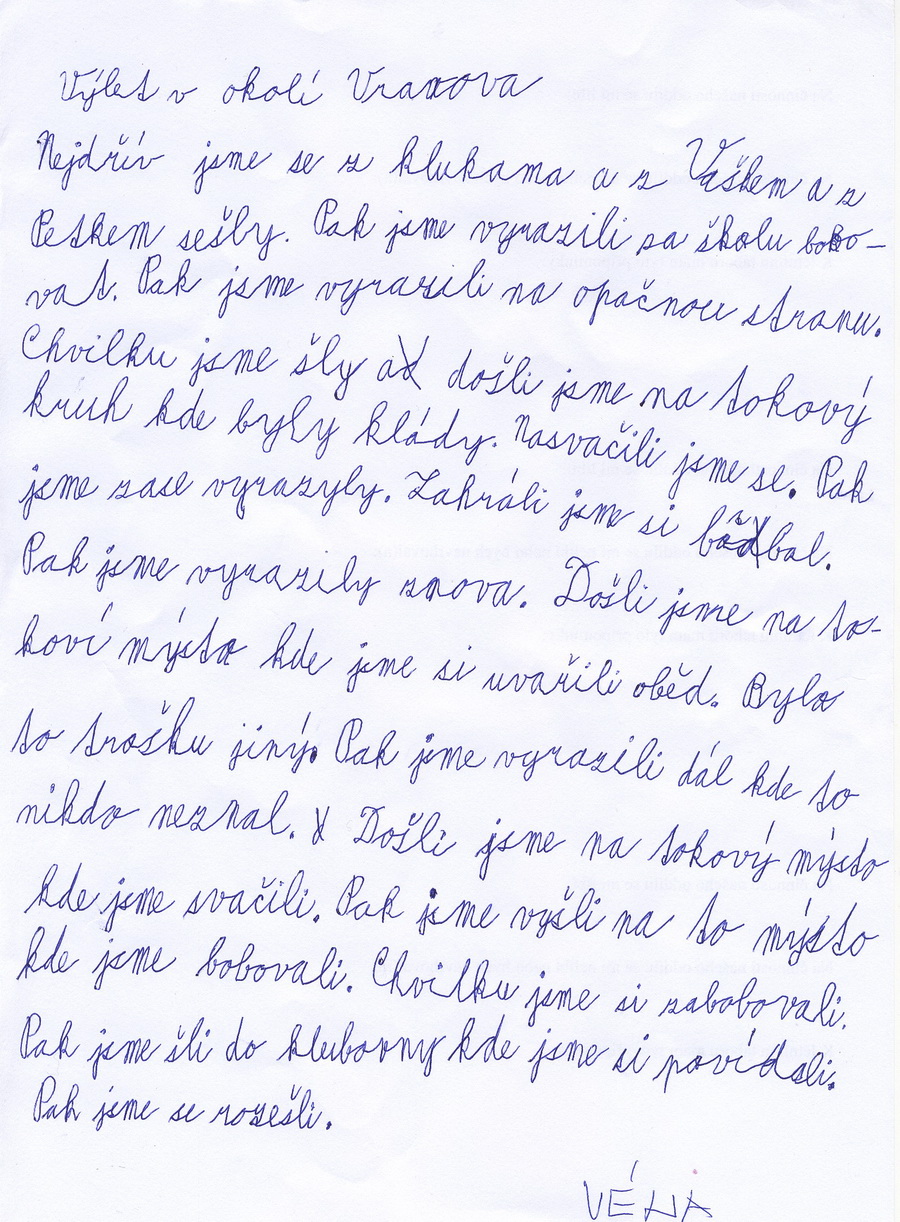 Výlet v okolí Vranova
Nejdřív jsme se z klukama a z Vaškem a z
Petkem sešly. Pak jsme vyrazili za školu bobo-
vat. Pak jsme vyrazili na opačnou stranu.
Chvilku jsme šly a došli jsme na tokový
kruh kde byly klády. Nasvačili jsme se. Pak
jsme zase vyrazyly. Zahráli jsme si bal.
Pak jsme vyrazily znova. Došli jsme na to-
koví mýsto kde jsme si uvařili oběd. Bylo
to trošku jiný. Pak jsme vyrazili dál kde to
nikdo neznal. Došli jsme na tokový mýsto
kde jsme svačili. Pak jsme vyšli na to mýsto
kde jsme bobovali. Chvilku jsme si zabobovali.
Pak jsme šli do klubovny kde jsme si povídali.
Pak jsme se rozešli.